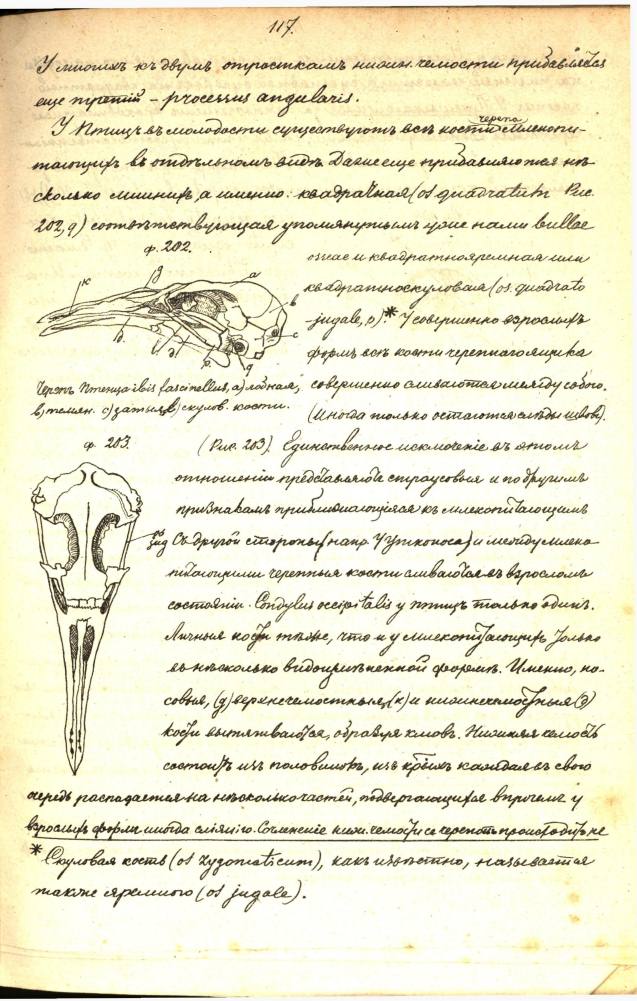 117.
У многихъ къ двумъ отросткамъ нижн. челюсти прибавляется
еще третій – processus angularis.
У Птицъ въ молодости существуютъ всѣ кости черепа млекопи-
тающихъ въ отдѣльномъ видѣ. Даже еще прибавляются нѣ-
сколько лишнихъ, а именно: квадратная (os quadratum Рис.
202, q) соотвѣтствующая упомянутымъ уже нами bullae
ф. 202.
osseae и квадратнояремная или
квадратноскуловая (os. quadrato
jugale, p).* У совершенно взрослыхъ
формъ всѣ кости черепнаго ящика
совершенно сливаются между собою.
(Иногда только остаются слѣды швовъ).
к
g
a
b
c
d
p
q
Черепъ Птенца ibis fascinellus, a) лобная,
в) темян. c) затил. скулов. кости.
ф. 203.
(Рис. 203). Единственное исключеніе въ этомъ
отношеніи представляютъ страусовыя и по другимъ
признакамъ приближающіяся къ млекопитающимъ
Съ другой стороны (напр. У утконоса) и между млеко
питающими черепныя кости сливаются въ взросломъ
состояніи. Condylus occipitalis у птицъ только одинъ.
Личныя кости тѣже, что и у млекопитающихъ только
въ нѣсколько видоизмѣненной формѣ. Именно, но-
совыя, (g) верхнечелюстныя, (к) и нижнечелюстныя (d)
кости вытягиваются, образуя клювъ. Нижняя челюсть
состоитъ изъ половинокъ, изъ коихъ каждая въ свою
очередь распадается на нѣсколько частей, подвергающихся впрочемъ у
взрослыхъ формъ иногда сліянію. Сочлененіе нижн. челюсти съ черепомъ происходитъ не
* Скуловая кость (os zygomaticum), какъ извѣстно, называется
также яремною (os jugale).